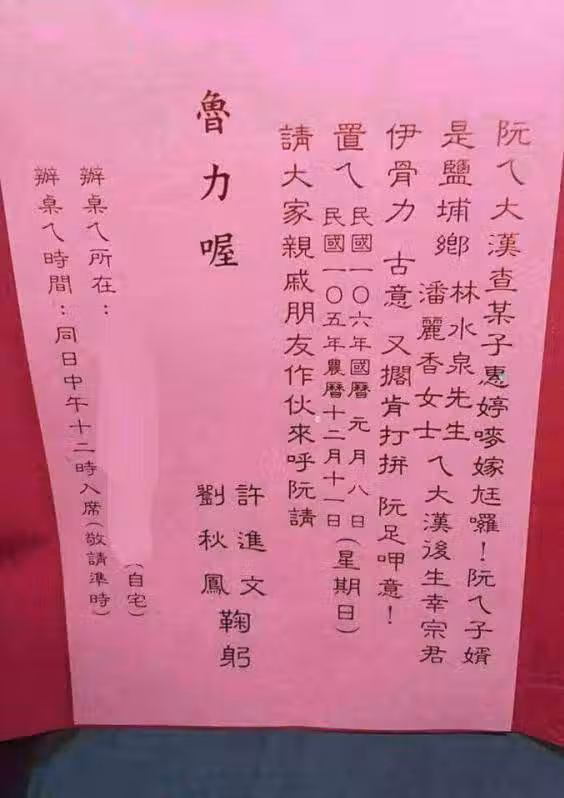 阮ㄟ大漢查某子惠婷嘜嫁尪囉！阮ㄟ子婿
是鹽埔鄉 林水泉先生 潘麗香女士 ㄟ大漢後生幸宗君
伊骨力 古意 又擱肯打拼 阮足呷意！
置ㄟ 民國一〇六年國曆 元月八日 民國一〇五年農曆十二月十一日 (星期日)
請大家親戚朋友作伙來呼阮請
魯力喔
許進文
劉秋鳳
鞠躬
辦桌ㄟ所在： (自宅)
辦桌ㄟ時間：同日中午十二時入席(敬請準時)